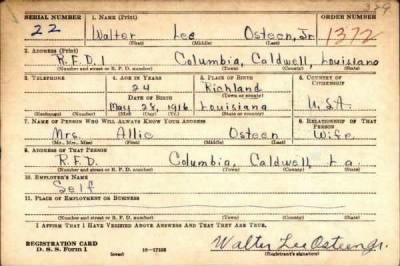 329
SERIAL NUMBER 1. NAME (Print) ORDER NUMBER
22 Walter Lee Osteen, Jr. 1372
(First) (Middle) (Last)
2. ADDRESS (Print)
R.F.D. 1 Columbia, Caldwell, Louisiana
(Number and street or R. F. D. number) (Town) (County) (State)
3. TELEPHONE 4. AGE IN YEARS 5. PLACE OF BIRTH 6. COUNTRY OF CITIZENSHIP
24 Richland
DATE OF BIRTH (Town or county)
May 28, 1916 Louisiana U.S.A.
(Exchange) (Number) (Mo.) (Day) (Yr.) (State or country)
7. NAME OF PERSON WHO WILL ALWAYS KNOW YOUR ADDRESS 8. RELATIONSHIP OF THAT PERSON
Mrs. Allie Osteen Wife
(Mr., Mrs., Miss) (First) (Middle) (Last)
9. ADDRESS OF THAT PERSON
R.F.D. Columbia, Caldwell, La.
(Number and street or R. F. D. number) (Town) (County) (State)
10. EMPLOYER'S NAME
Self
11. PLACE OF EMPLOYMENT OR BUSINESS
(Number and street or R. F. D. number) (Town) (County) (State)
I AFFIRM THAT I HAVE VERIFIED ABOVE ANSWERS AND THAT THEY ARE TRUE.
REGISTRATION CARD
D. S. S. Form 1 (over) 16—17105 Walter Lee Osteen Jr.
(Registrant's signature)